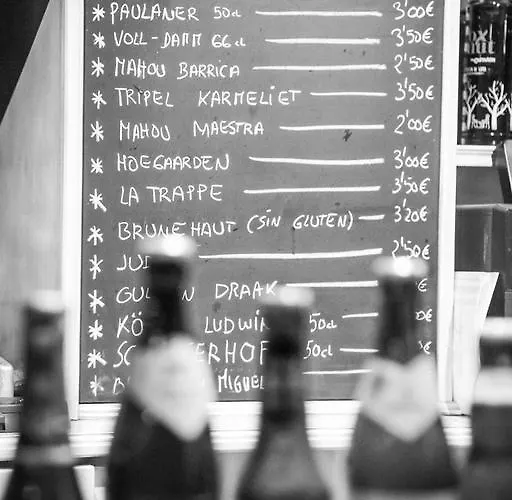 * PAULANER 50cl — 3'00€
* VOLL-DAMM 66cl — 3'50€
* MAHOU BARRICA — 2'50€
* TRIPEL KARMELIET — 3'50€
* MAHOU MAESTRA — 2'00€
* HOEGAARDEN — 3'00€
* LA TRAPPE — 3'50€
* BRUNEHAUT (SIN GLUTEN) — 3'20€
* — 2'50€
* DRAAK — €
* 50cl — €
* 50cl — €
* MIGUEL —